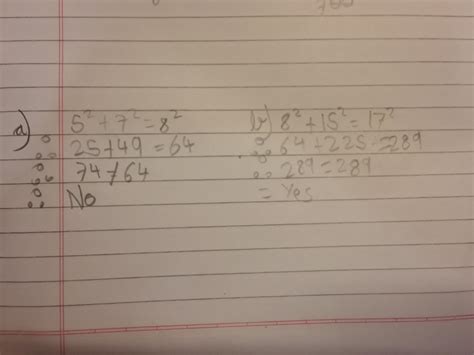 a) 5² + 7² = 8²
∴ 25 + 49 = 64
∴ 74 ≠ 64
∴ No
b) 8² + 15² = 17²
∴ 64 + 225 = 289
∴ 289 = 289
= Yes